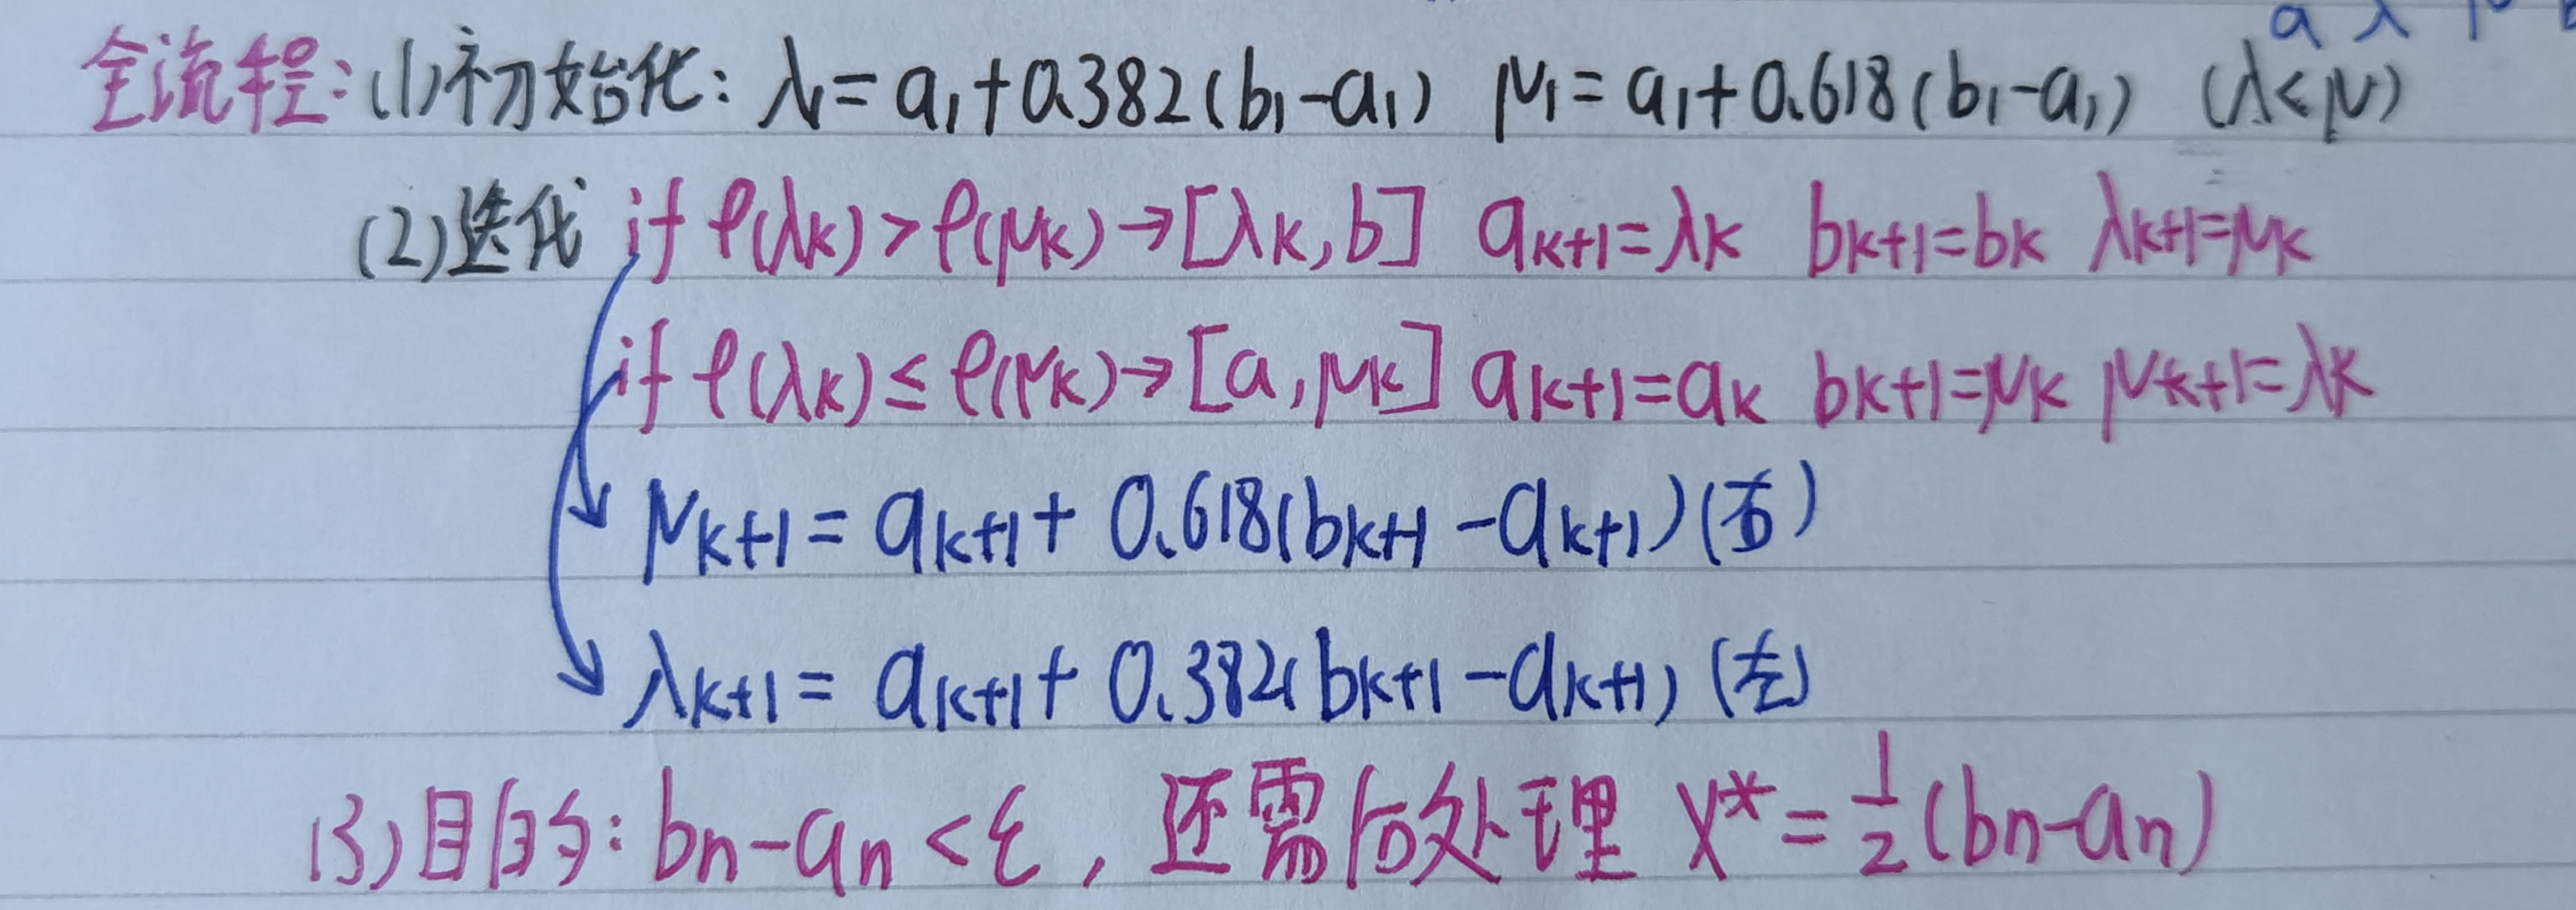 a λ μ b
全流程:(1)初始化: λ₁=a₁+0.382(b₁-a₁) μ₁=a₁+0.618(b₁-a₁) (λ<μ)
(2)迭代 if φ(λk)>φ(μk)→[λk,b] ak+1=λk bk+1=bk λk+1=μk
if φ(λk)≤φ(μk)→[a,μk] ak+1=ak bk+1=μk μk+1=λk
μk+1=ak+1+0.618(bk+1-ak+1)(右)
λk+1=ak+1+0.382(bk+1-ak+1)(左)
(3)目的: bn-an<ε, 还需后处理 x*=1/2(bn-an)